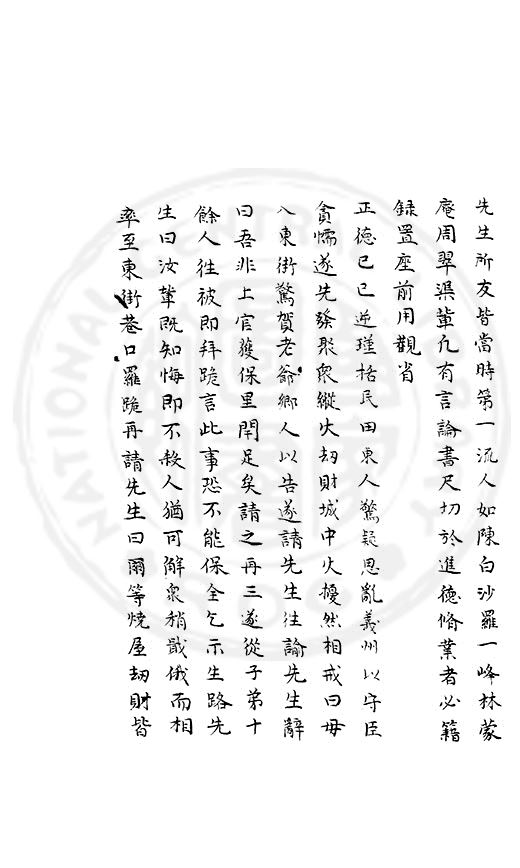 先生所友皆當時第一流人如陳白沙羅一峰林蒙
庵周翠渠輩凢有言論書尺切於進德脩業者必籍
録置座前用觀省
正德己巳逆瑾括民田東人驚疑思亂義州以守臣
貪懦遂先發聚衆縱火刼財城中火擾然相戒曰毋
入東街驚賀老爺鄉人以告遂請先生往諭先生辭
曰吾非上官獲保里閈足矣請之再三遂從子弟十
餘人往彼即拜跪言此事恐不能保全乞示生路先
生曰汝輩既知悔即不殺人猶可解衆稍戢俄而相
率至東街巷口羅跪再請先生曰爾等燒屋刼財皆